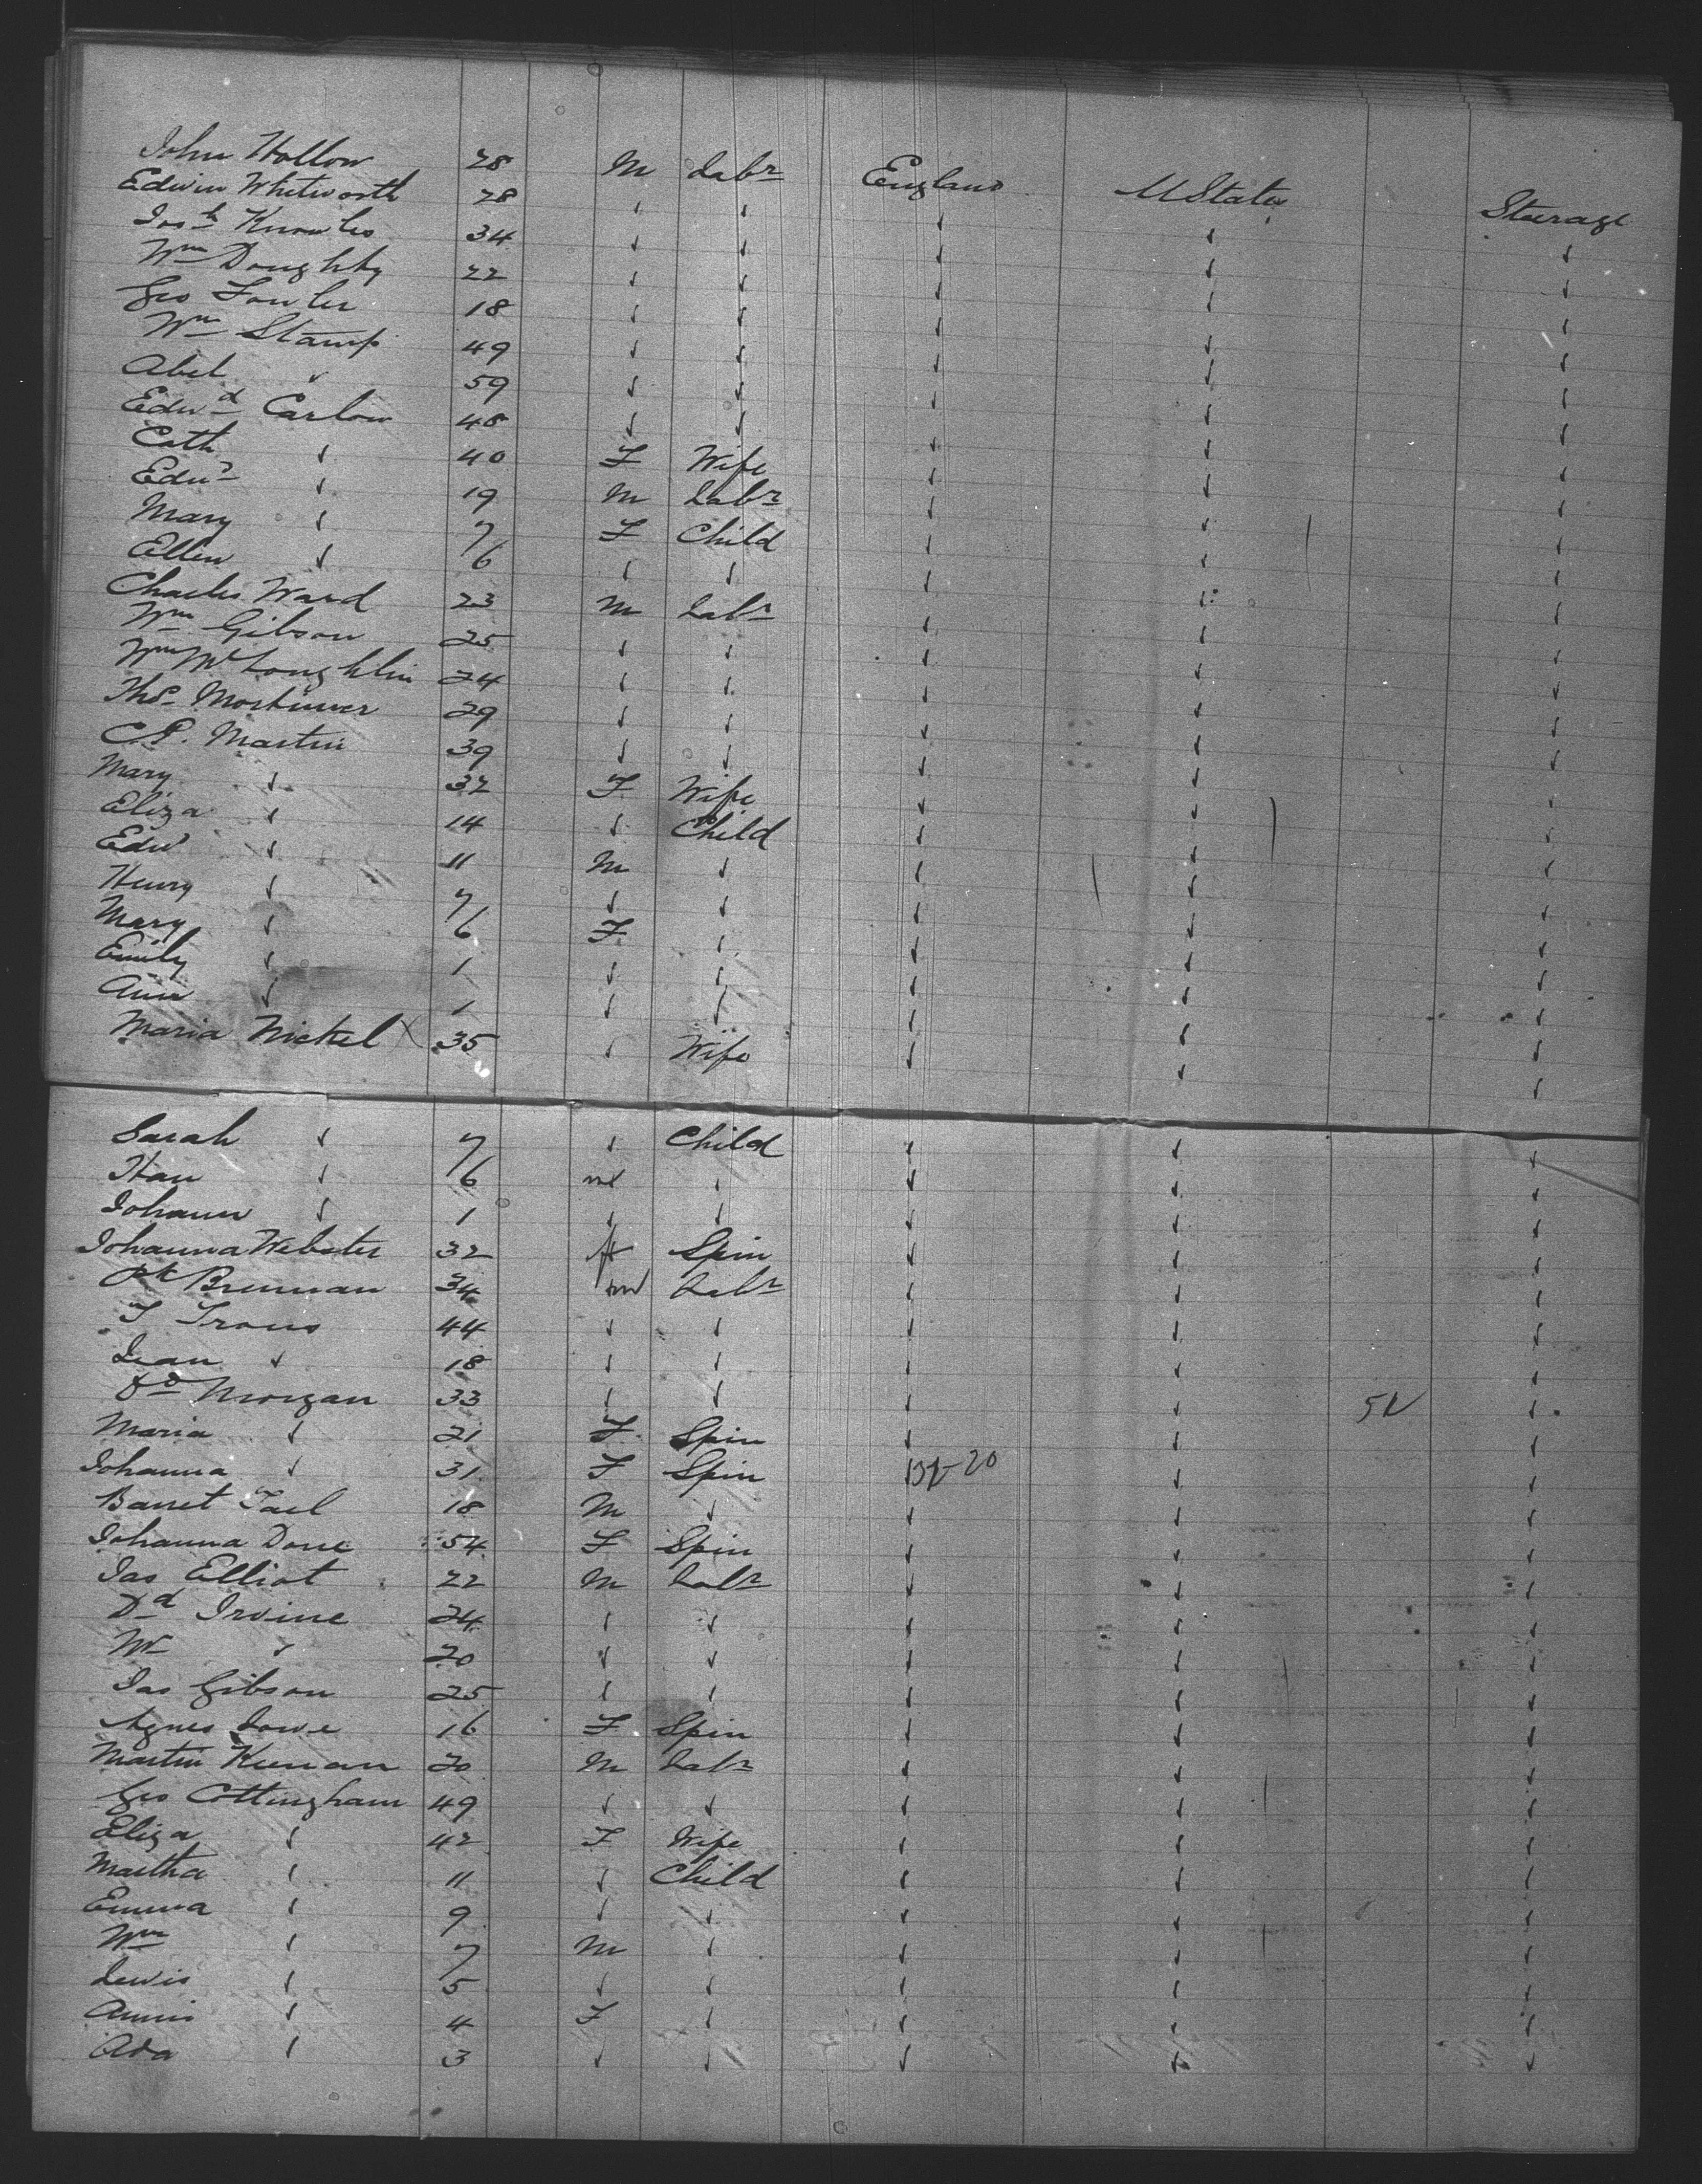 John Hollow 28 M Labr England U States Steerage
Edwin Whitworth 28 " " " " "
Josh Knowles 34 " " " " "
Wm Doughty 22 " " " " "
Geo Fowler 18 " " " " "
Wm Stamp 49 " " " " "
Abel " 59 " " " " "
Edwd Carlow 48 " " " " "
Cath " 40 F Wife " " "
Edwd " 19 M Labr " " "
Mary " 7 F Child " " "
Ellen " 6 " " " " "
Charles Ward 23 M Labr " " "
Wm Gibson 25 " " " " "
Wm McLoughlin 24 " " " " "
Thos Mortimer 29 " " " " "
C.P. Martin 39 " " " " "
Mary " 32 F Wife " " "
Eliza " 14 " Child " " "
Edwd " 11 M " " " "
Henry " 7 " " " " "
Mary " 6 F " " " "
Emily " 1 " " " " "
Ann " 1 " " " " "
Maria Nickel X 35 " Wife " " "
Sarah " 7 " Child " " "
Han " 6 m " " " "
Johann " 1 " " " " "
Johanna Webster 32 f Spin " " "
Pk Brennan 34 m Labr " " "
44 " " " " "
" 18 " " " " "
Morgan 33 " " " " "
Maria " 21 F Spin " " "
Johanna " 31 F Spin " " "
Barret 18 M " " " "
Johanna Done 54 F Spin " " "
Jas Elliot 22 M Labr " " "
Dd Irvine 24 " " " " "
Wm " 20 " " " " "
Jas Gibson 25 " " " " "
Agnes Lowe 16 F Spin " " "
Martin Keenan 20 M Labr " " "
Geo Cottingham 49 " " " " "
Eliza " 42 F Wife " " "
Martha " 11 " Child " " "
Emma " 9 " " " " "
Wm " 7 M " " " "
Lewis " 5 " " " " "
Annis " 4 F " " " "
Ada " 3 " " " " "